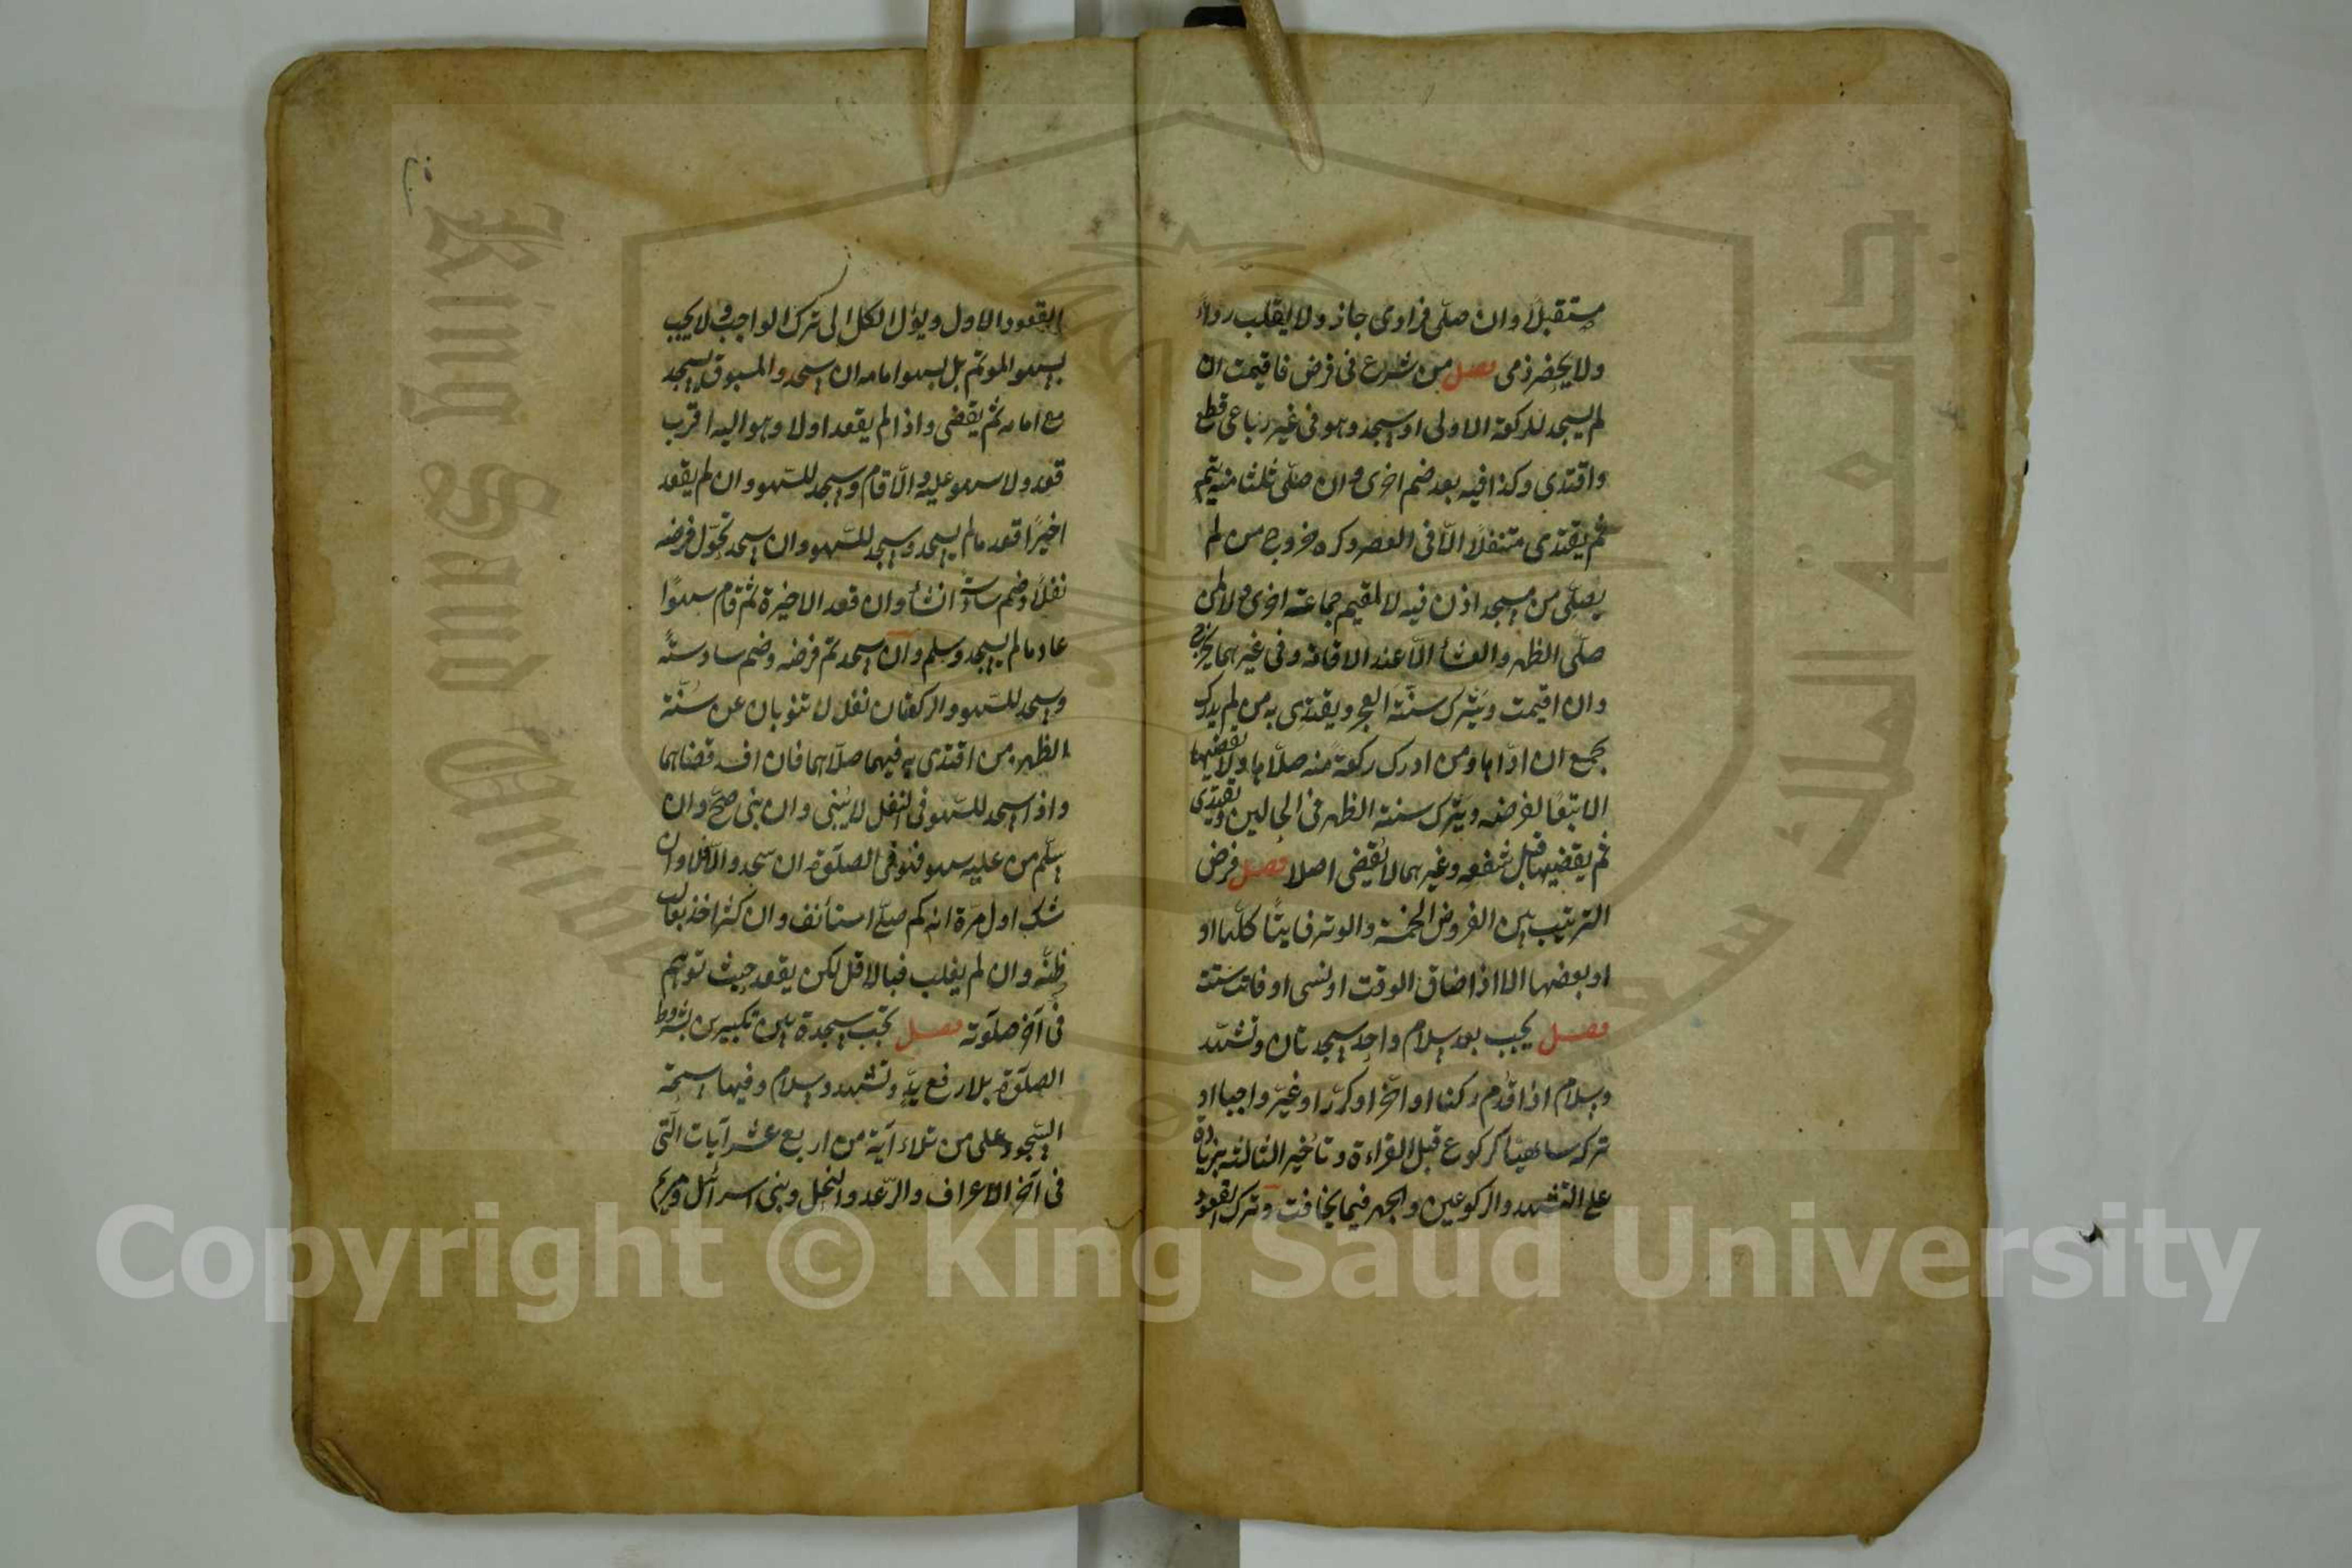 مستقبلا وان صلى فرادى جاز ولا يقلب رداء
ولا يحضر ذمى فصل من شرع فى فرض فاقيمت ان
لم يسجد للركعة الاولى او سجد وهو فى غير رباعى قطع
واقتدى وكذا فيه بعد ضم اخرى وان صلى ثلثا منه يتم
ثم يقتدى متنفلا الا فى العصر وكره خروج من لم
يصلى من مسجد اذن فيه لا لمقيم جماعة اخرى ولا لمن
صلى الظهر والعشأ الا عند الاقامة وفى غيرهما يخرج
وان اقيمت ويترك سنة الفجر ويقتدى به من لم يدرك
بجمع ان اداها ومن ادرك ركعة منه صلاها ولا يقضيها
الا تبعا لفرضه ويترك سنة الظهر فى الحالين ويقتدى
ثم يقضيها قبل شفعه وغيرهما لا يقضى اصلا فصل فرض
الترتيب بين الفروض الخمسة والوتر فايتا كلها او
او بعضها الا اذا ضاق الوقت او نسى او فاتت ستة
فصل يجب بعد سلام واحد سجدتان وتشهد
وسلام اذا قدم ركنا او اخر او كرر او غير واجبا او
تركه ساهيا كركوع قبل القراءة وتأخير الثالثه بزيادة
على التشهد والركوعين والجهر فيما يخافت وترك القعود
القعود الاول ويؤل الكل الى ترك الواجب ولا يجب
بسهو الموتم بل بسهو امامه ان سجد والمسبوق يسجد
مع امامه ثم يقضى واذا لم يقعد اولا وهو اليه اقرب
قعد ولا سهو عليه والا قام وسجد للسهو وان لم يقعد
اخيرا قعد مالم يسجد وسجد للسهو وان سجد تحول فرضه
نفلا وضم سادسة ان شأ وان قعد الاخيرة ثم قام سهوا
عاد مالم يسجد وسلم وان سجد تم فرضه وضم سادسة
وسجد للسهو والركعتان نفل لا تنوبان عن سنة
الظهر من اقتدى به فيهما صلاهما فان افسد قضاهما
واذا سجد للسهو فى النفل لا يبنى وان بنى صح وان
سلم من عليه سهو فهو فى الصلوة ان سجد والا فلا وان
شك اول مرة انه كم صلى استأنف وان كثر اخذ بغالب
ظنه وان لم يغلب فبالاقل لكن يقعد حيث توهم
فى آخر صلوته فصل تجب سجدة بين تكبيرين بشروط
الصلوة بلا رفع يد وتشهد وسلام وفيها سبحة
السجود على من تلاء آية من اربع عشر آيات التى
فى آخر الاعراف والرعد والنحل وبنى اسرائل ومريم
King Saud Univer
جامعة الملك سعود
Copyright © King Saud University